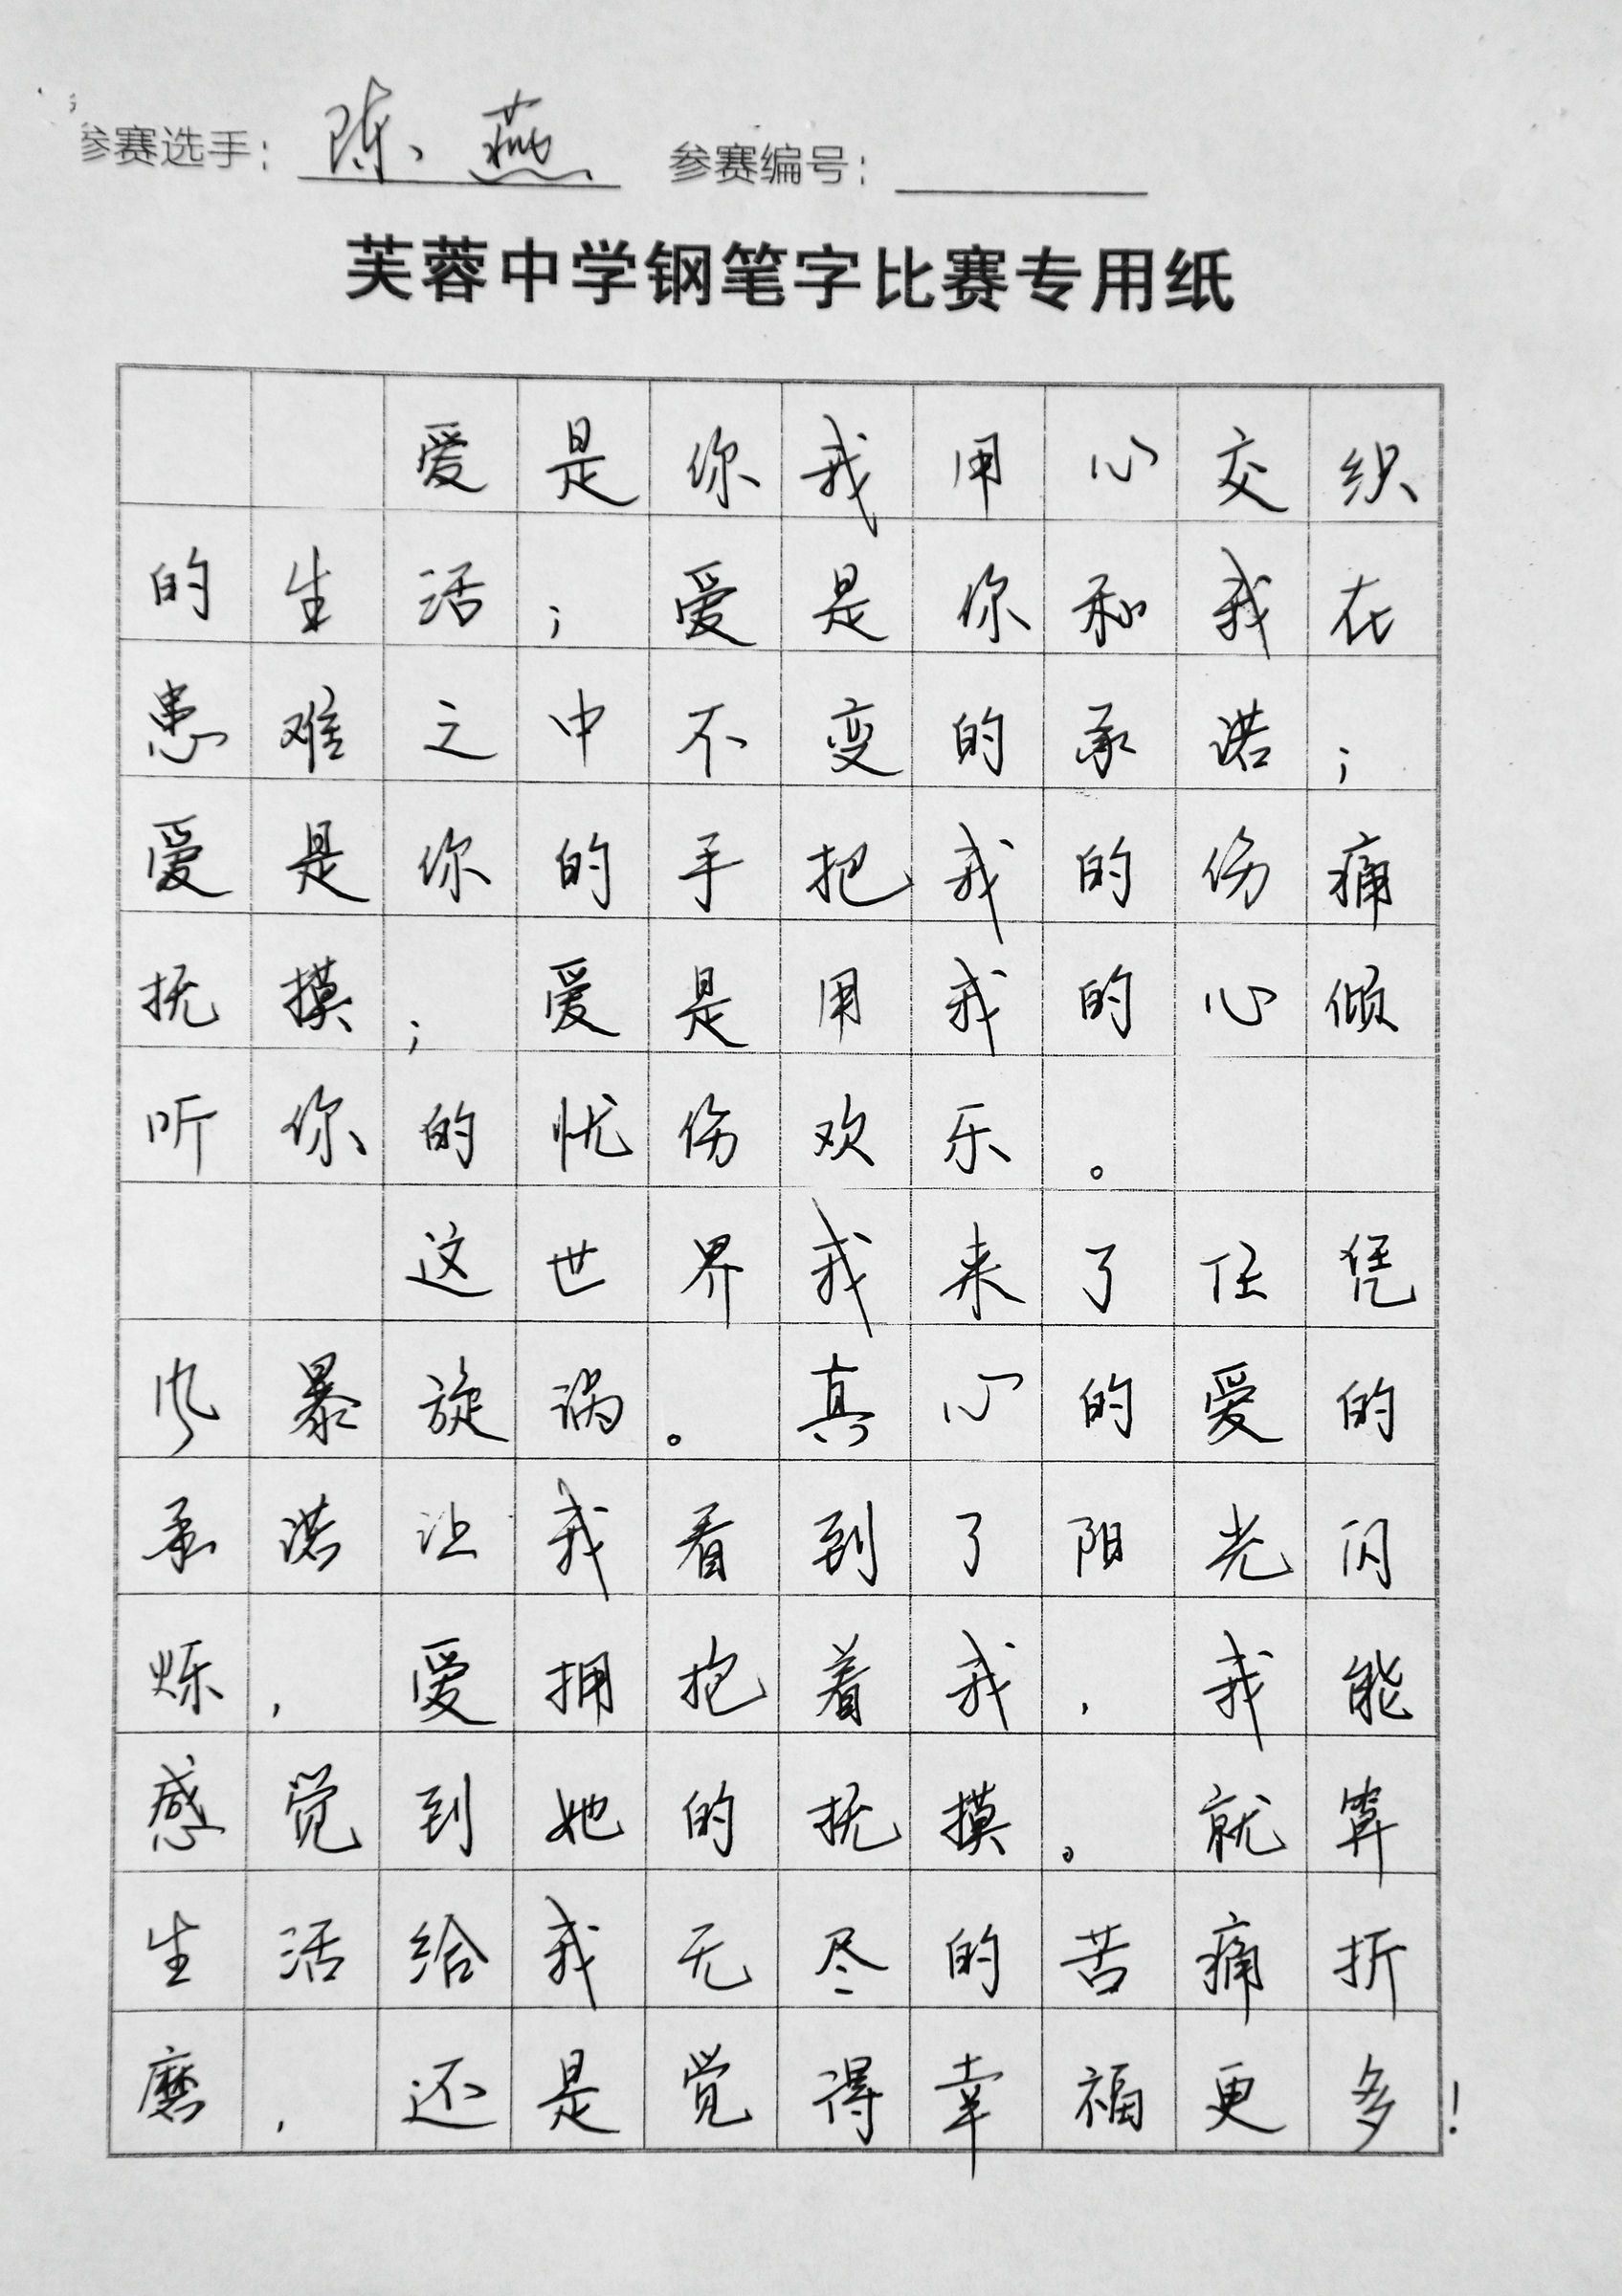 参赛选手：陈燕 参赛编号：
芙蓉中学钢笔字比赛专用纸
爱是你我用心交织
的生活；爱是你和我在
患难之中不变的承诺；
爱是你的手把我的伤痛
抚摸；爱是用我的心倾
听你的忧伤欢乐。
这世界我来了任凭
风暴旋涡。真心的爱的
承诺让我看到了阳光闪
烁，爱拥抱着我，我能
感觉到她的抚摸。就算
生活给我无尽的苦痛折
磨，还是觉得幸福更多！